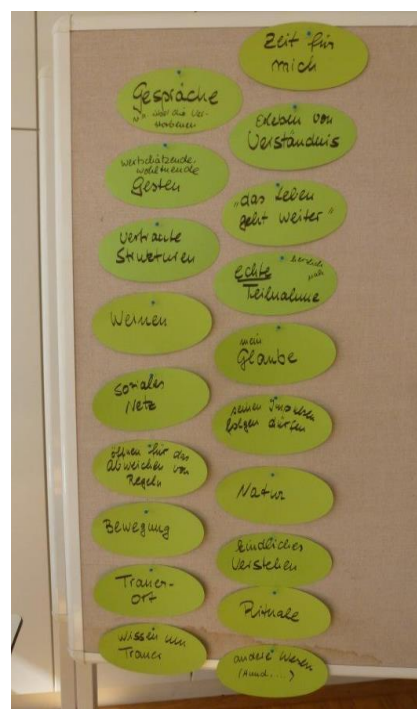 Gespräche
über die Ver-
storbenen
wertschätzende,
wohltuende
Gesten
vertraute
Strukturen
Weinen
soziales
Netz
öffnen für das
Abweichen von
Regeln
Bewegung
Trauer-
ort
Wissen um
Trauer
Zeit für
mich
Erleben von
Verständnis
"das Leben
geht weiter"
echte
Teilnahme
mein
Glaube
seinen Impulsen
folgen dürfen
Natur
kindliches
Verstehen
Rituale
andere Wesen
(Hund, ...)